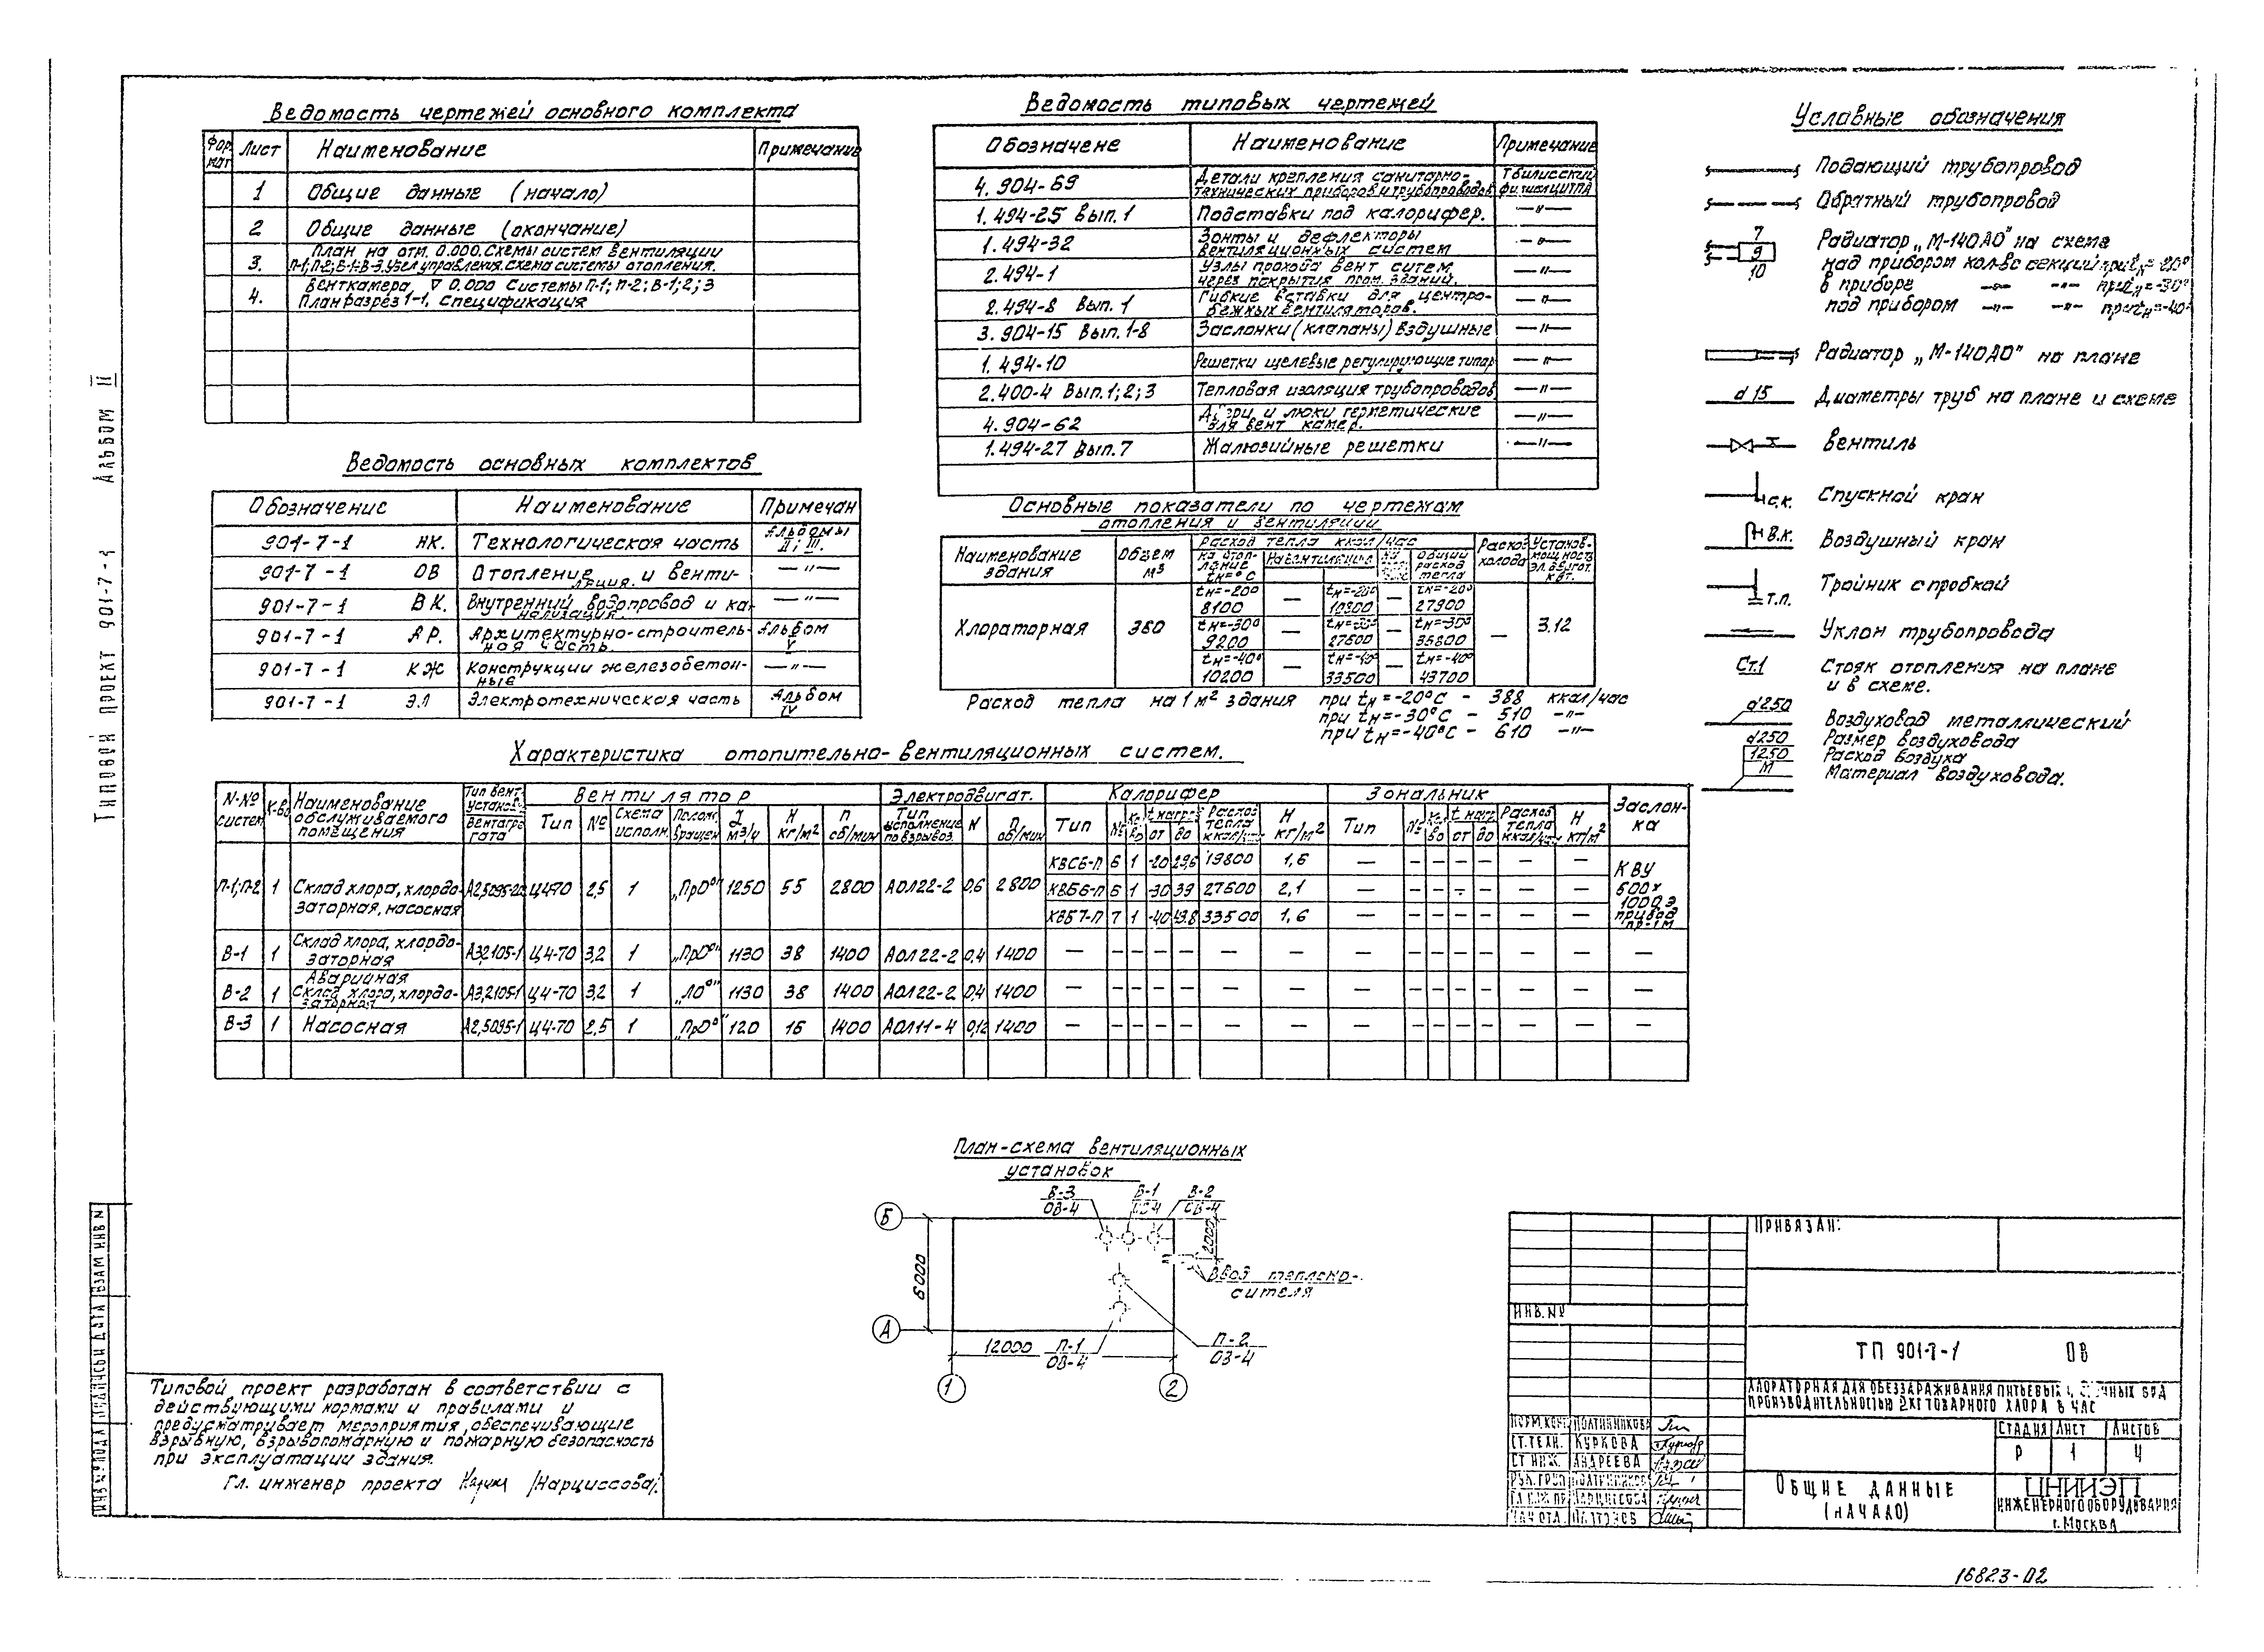 Ведомость чертежей основного комплекта
Фор мат Лист Наименование Примечание
1 Общие данные (начало)
2 Общие данные (окончание)
3. План на отм. 0.000. Схемы систем вентиляции
П-1; П-2; В-1÷В-3. Узел управления. Схема системы отопления.
4. Венткамера, ▽ 0.000 Системы П-1; П-2; В-1; 2; 3
План разрез 1-1. Спецификация
Ведомость основных комплектов
Обозначение Наименование Примечан
901-7-1 НК. Технологическая часть Альбомы II; III.
901-7-1 ОВ Отопление и венти-
ляция. —"—
901-7-1 ВК. Внутренний водопровод и ка-
нализация. —"—
901-7-1 АР. Архитектурно-строитель-
ная часть. Альбом V
901-7-1 КЖ Конструкции железобетон-
ные —"—
901-7-1 ЭЛ Электротехническая часть Альбом IV
Ведомость типовых чертежей
Обозначене Наименование Примечание
4.904-69 Детали крепления санитарно-
технических приборов и трубопроводов Тбилисский филиал ЦИТП
1.494-25 Вып.1 Подставки под калорифер. —"—
1.494-32 Зонты и дефлекторы
вентиляционных систем —"—
2.494-1 Узлы прохода вент ситем
через покрытия пром. зданий. —"—
2.494-8 Вып. 1 Гибкие вставки для центро-
бежных вентиляторов. —"—
3.904-15 Вып. 1-8 Заслонки (клапаны) воздушные —"—
1.494-10 Решетки щелевые регулирующие типа р —"—
2.400-4 Вып.1; 2; 3 Тепловая изоляция трубопроводов —"—
4.904-62 Двери и люки герметические
для вент камер. —"—
1.494-27 Вып. 7 Жалюзийные решетки —"—
Основные показатели по чертежам
отопления и вентиляции
Наименование здания Объем м³ Расход тепла ккал/час Расход холода Установ. мощность эл. двигат. квт.
на отоп-ление tн=°С На вентиляцию Общий расход тепла
Хлораторная 360 3.12
tн=-20° 8100 — tн=-20° 19800 — tн=-20° 27900
tн=-30° 9200 — tн=-30° 27600 — tн=-30° 36800 —
tн=-40° 10200 — tн=-40° 33500 — tн=-40° 43700
Расход тепла на 1м² здания при tн=-20°С - 388 ккал/час
при tн=-30°С - 510 —"—
при tн=-40°С - 610 —"—
Условные обозначения
Подающий трубопровод
Обратный трубопровод
7
9
10
Радиатор „М-140АО" на схеме
над прибором кол-во секций при tн=-20°
в приборе —"— —"— при tн=-30°
под прибором —"— —"— при tн=-40°
Радиатор „М-140АО" на плане
d 15 Диаметры труб на плане и схеме
Вентиль
С.К. Спускной кран
В.К. Воздушный кран
Т.П. Тройник с пробкой
Уклон трубопровода
Ст.1 Стояк отопления на плане
и в схеме.
d250 Воздуховод металлический
d250 Размер воздуховода
1250 Расход воздуха
М Материал воздуховода.
Характеристика отопительно-вентиляционных систем.
N-№ систем К-во Наименование обслуживаемого помещения Тип вент. установ. Вентагре гата Вентилятор Электродвигат. Калорифер Зональник Заслон-ка
Тип № Схема исполн. Полож. вращен. L м³/ч Н кг/м² n об/мин Тип исполнение по взрывоз. N n об/мин Тип № К-во t нагр. от до Расход тепла ккал/час Н кг/м² Тип № К-во t наг. от до Расход тепла ккал/час Н кг/м²
КВС6-П 6 1 -20 29,6 19800 1,6 — — — — — — —
П-1; П-2 1 Склад хлора, хлордо-
заторная, насосная А2,5095-2а Ц4-70 2,5 1 „Пр0°" 1250 55 2800 АОЛ22-2 0,6 2800 КВБ6-П 6 1 -30 39 27600 2,1 — — — — — — —
КВБ7-П 7 1 -40 43.8 33500 1,6 — — — — — — —
КВУ 600х 1000 Э. привод ПР-1М
В-1 1 Склад хлора, хлордо-
заторная А3,2105-1 Ц4-70 3,2 1 „Пр0°" 1130 38 1400 АОЛ22-2 0,4 1400 — — — — — — — — — — — — — — —
Аварийная
В-2 1 Склад хлора, хлордо-
заторная А3,2105-1 Ц4-70 3,2 1 „Л0°" 1130 38 1400 АОЛ22-2 0,4 1400 — — — — — — — — — — — — — — —
В-3 1 Насосная А2,5095-1 Ц4-70 2,5 1 „Пр0°" 120 16 1400 АОЛ11-4 0,12 1400 — — — — — — — — — — — — — — —
План-схема вентиляционных
установок
В-3
ОВ-4
В-1
ОВ-4
В-2
ОВ-4
Б
А
6000
2000
Ввод теплоно-
сителя
12000
П-1
ОВ-4
П-2
ОВ-4
1
2
Типовой проект разработан в соответствии с
действующими нормами и правилами и
предусматривает мероприятия, обеспечивающие
взрывную, взрывопожарную и пожарную безопасность
при эксплуатации здания.
Гл. инженер проекта /Нарциссова/.
Типовой проект 901-7-1 Альбом II
Инв. № подл. Подпись и дата Взам инв N
Привязан:
Инв. №
ТП 901-7-1 ОВ
Хлораторная для обеззараживания питьевых и сточных вод
производительностью 2кг товарного хлора в час
Стадия Лист Листов
Р 1 4
Общие данные
(начало)
ЦНИИЭП
инженерного оборудования
г. Москва
Норм. конт. Полтинникова
Ст. техн. Куркова
Ст инж. Андреева
Рук. груп.
Гл инж пр Нарциссова
Нач отд.
16823-02